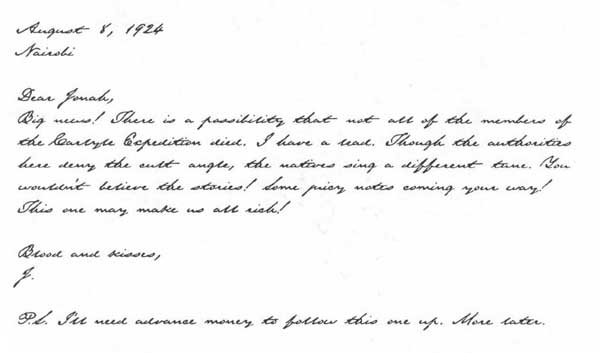 August 8, 1924
Nairobi
Dear Jonah,
Big news! There is a possibility that not all of the members of
the Carlyle Expedition died. I have a lead. Though the authorities
here deny the cult angle, the natives sing a different tune. You
wouldn't believe the stories! Some juicy notes coming your way!
This one may make us all rich!
Blood and kisses,
J.
P.S. I'll need advance money to follow this one up. More later.